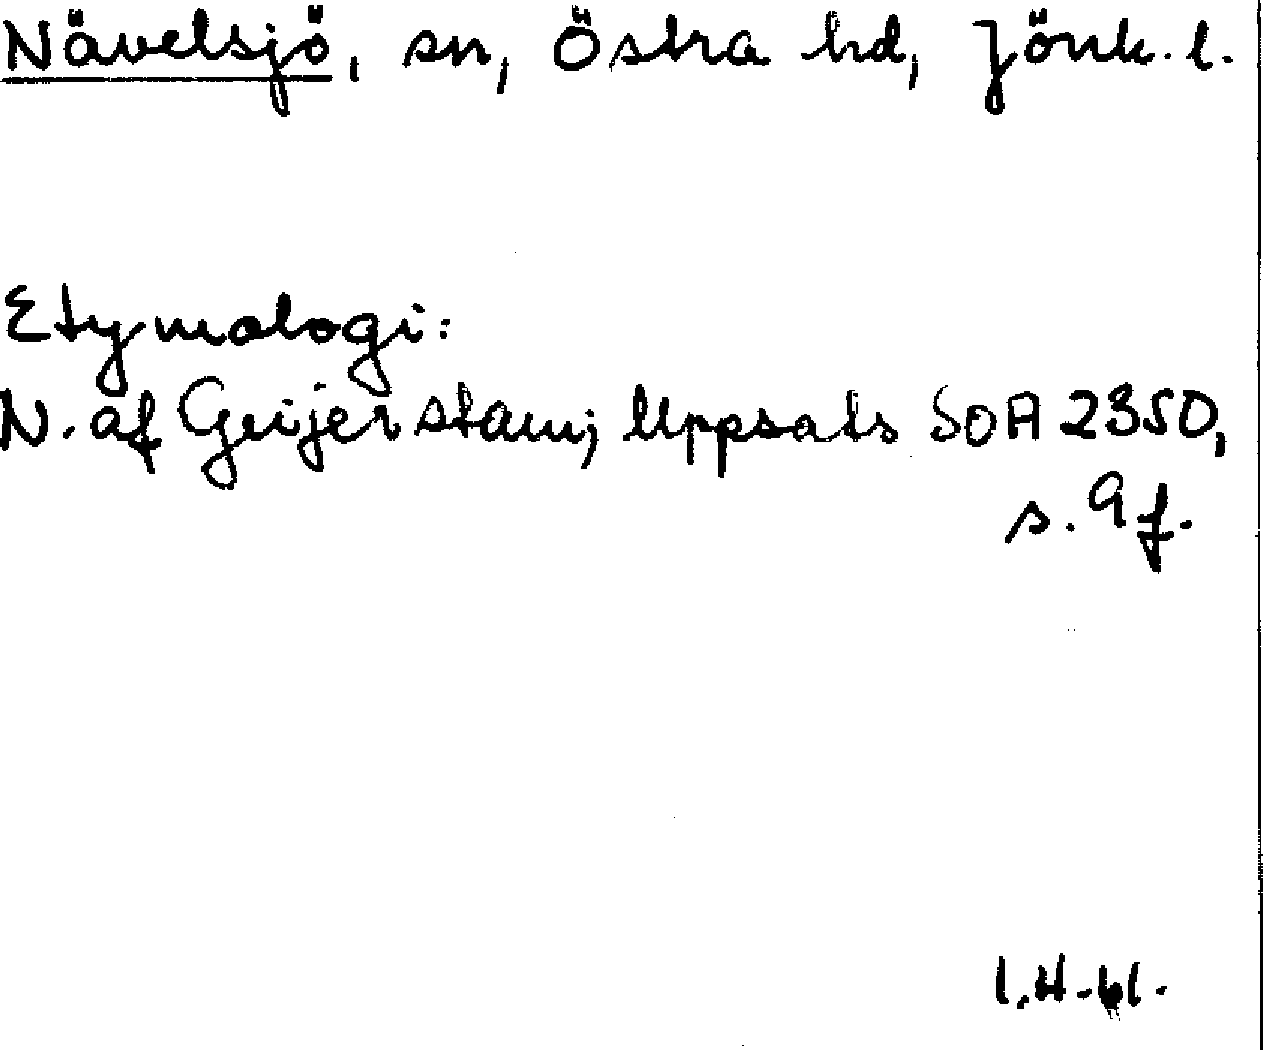 Nävelsjö, sn, Östra hd, Jönk. l.
Etymologi:
N. af Geijerstam, Uppsats SOA 2350,
s. 9 f.
I.H-61.